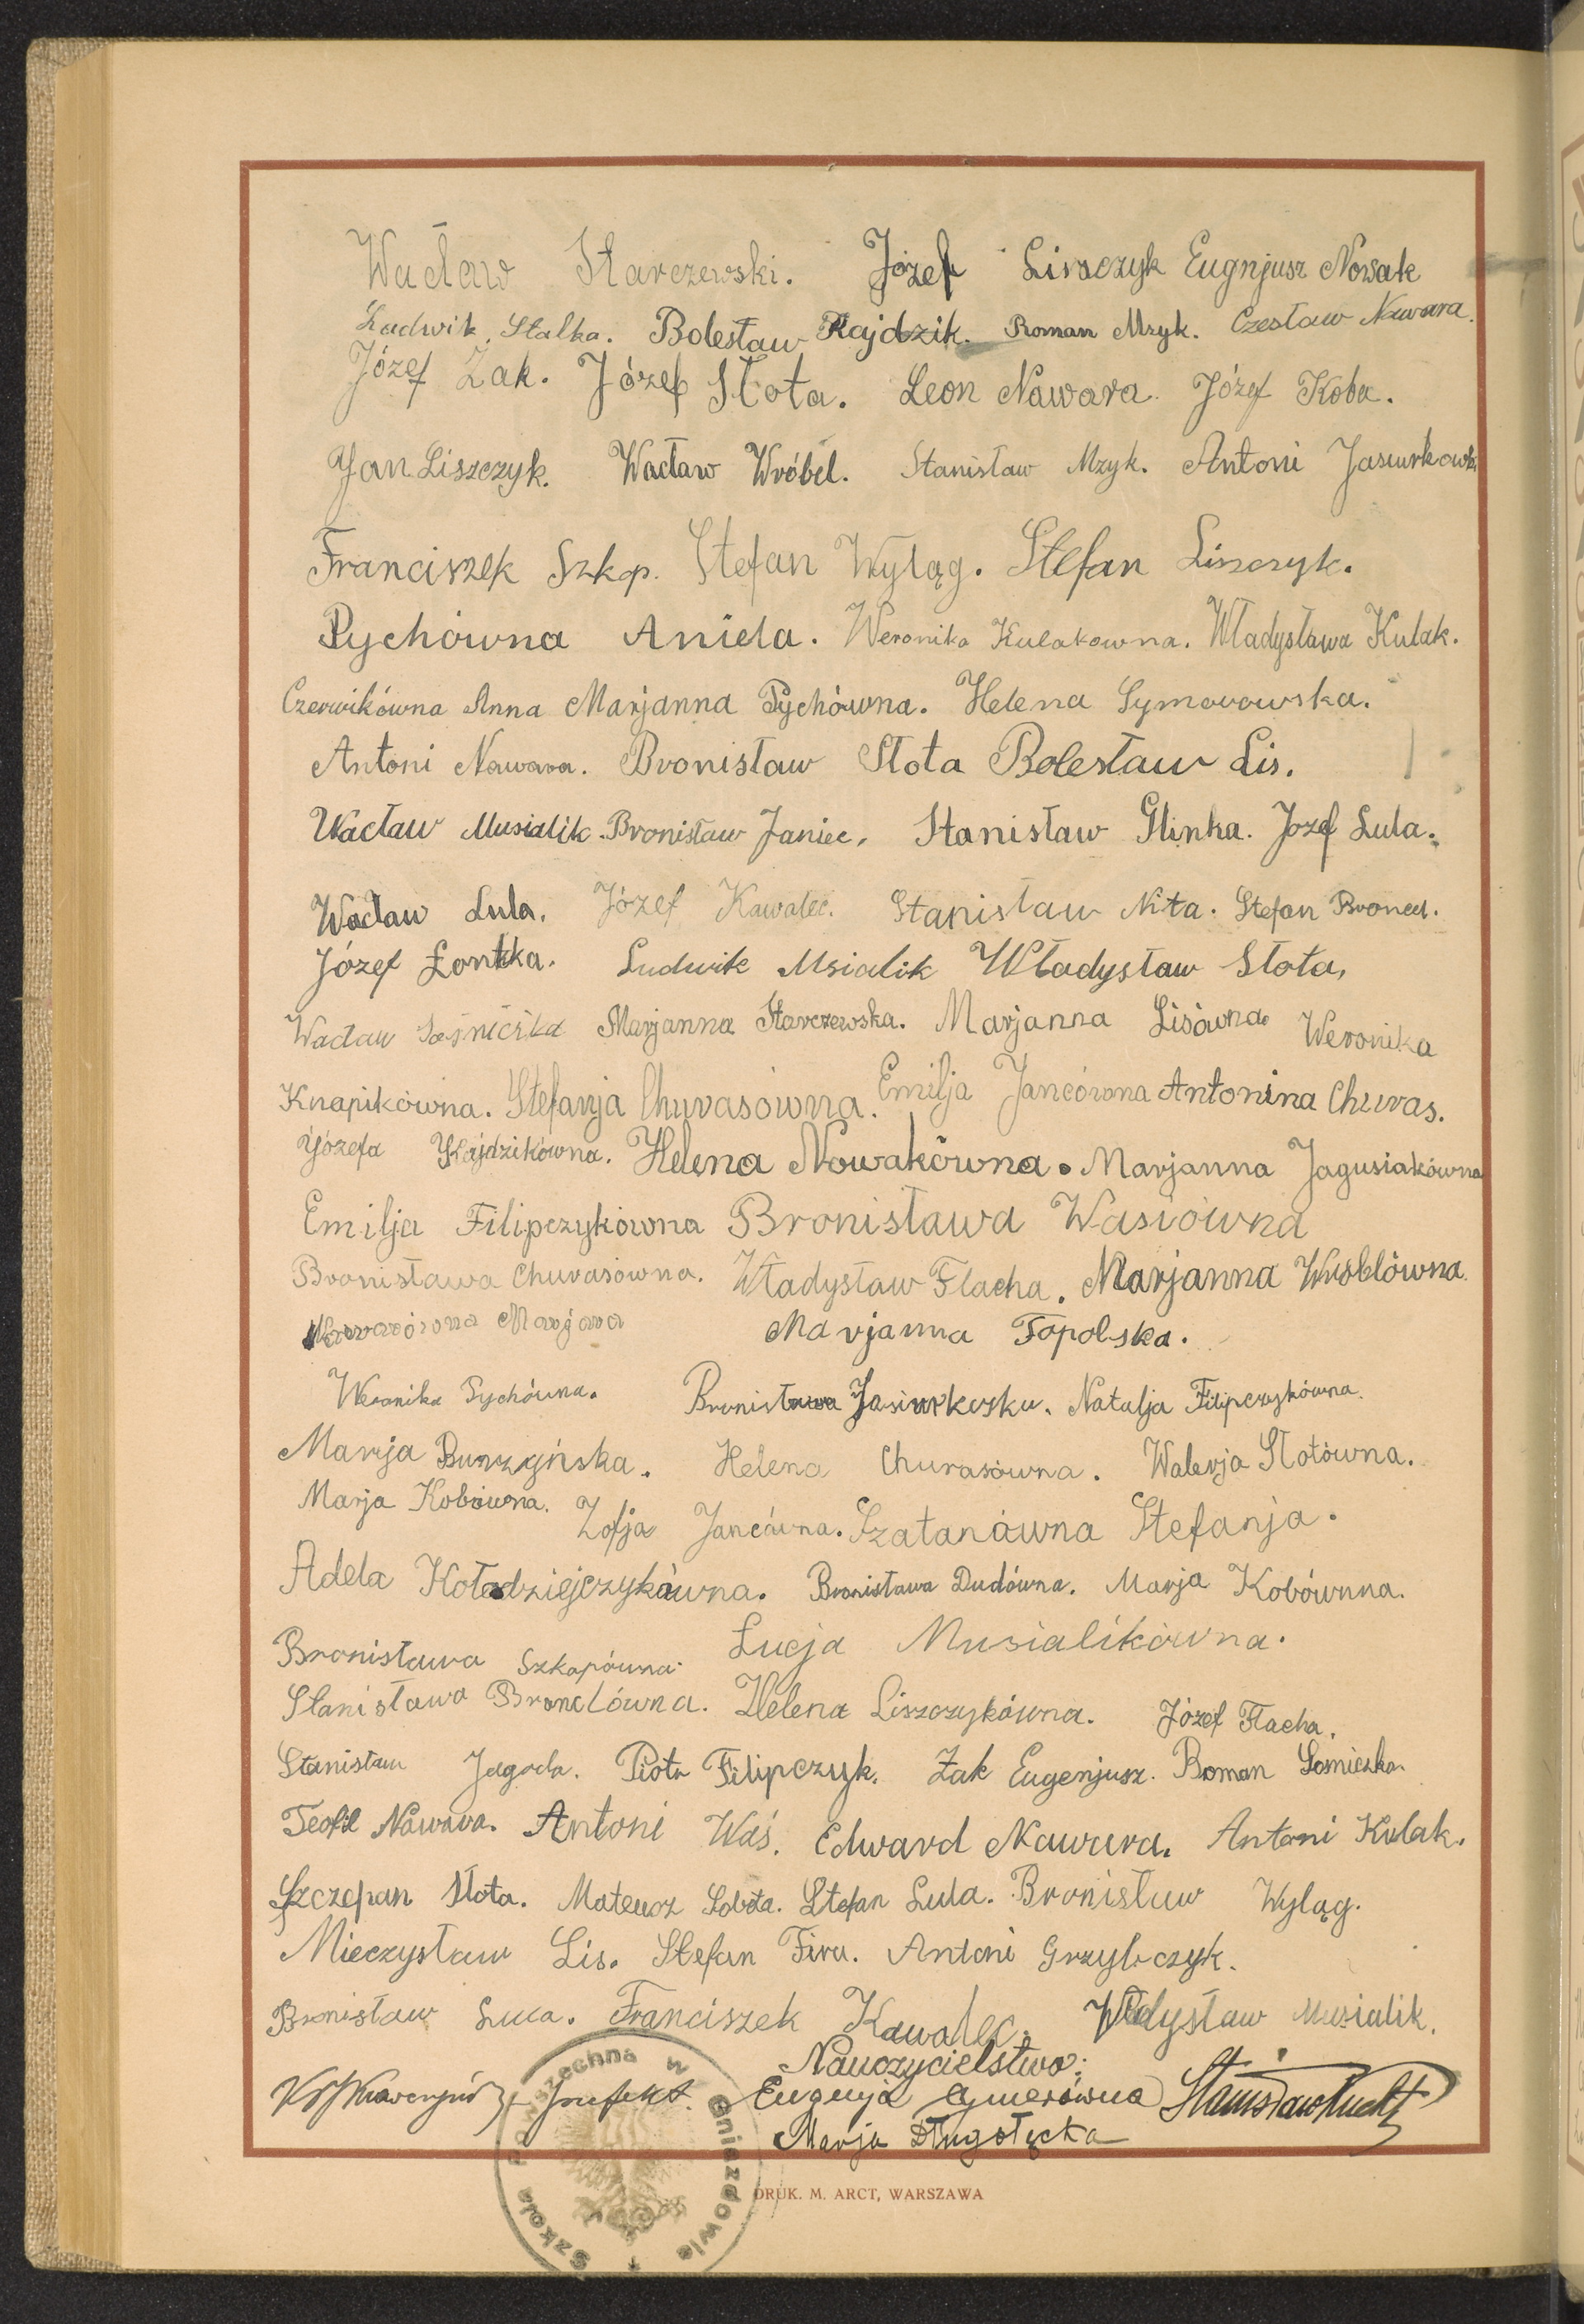 Wacław Starczewski. Józef Liszczyk Eugnjusz Nowak
Ludwik Stalka. Bolesław Rajdzik. Roman Mzyk. Czesław Nawara.
Józef Żak. Józef Słota. Leon Nawara. Józef Koba.
Jan Liszczyk. Wacław Wróbel. Stanisław Mzyk. Antoni Jasiurkowsk.
Franciszek Szkop. Stefan Wyląg. Stefan Liszczyk.
Pychówna Aniela. Weronika Kulakowna. Władysława Kulak.
Czerwikówna Anna Marjanna Pychówna. Helena Symorowska.
Antoni Nawara. Bronisław Słota Bolesław Lis.
Wacław Musialik. Bronisław Janiec. Stanisław Glinka. Jozef Lula.
Wacław Lula. Józef Kawalec. Stanisław Nita. Stefan Broncel.
Józef Łontka. Ludwik Msialik Władysław Słota,
Wacław Marjanna Starczewska. Marjanna Lisówna. Weronika
Knapikówna. Stefanja Churasówna. Emilja Jancówna Antonina Churas.
Józefa Rajdzikówna. Helena Nowakówna. Marjanna Jagusiakówna
Emilja Filipczykówna Bronisława Wasiówna
Bronisława Churasówna. Władysław Flacha. Marjanna Wróblówna.
Nawarówna Marjana Marjanna Topolska.
Weronika Pychówna. Bronisława Natalja Filipczykówna.
Marija Helena Churasówna. Walerja Słotówna.
Marja Kobówna. Zofja Jancówna. Szatanówna Stefanja.
Adela Kołodziejczykówna. Bronisława Dudówna. Marja Kobównna.
Bronisława Szkopówna. Łucja Musialikówna.
Stanisława Bronclówna. Helena Liszczykówna. Józef Flacha.
Stanisław Jagoda. Piotr Filipczyk. Żak Eugenjusz. Roman Sośniczka.
Teofil Nawara. Antoni Waś. Edward Nawara. Antoni Kulak.
Szczepan Słota. Mateusz Sobota. Stefan Lula. Bronisław Wyląg.
Mieczysław Lis. Stefan Fira. Antoni Grzybczyk.
Bronisław Franciszek Kawalec. Władysław Musialik.
Nauczycielstwo:
Prefekt. Eugenja Cymerówna Stanisław
Marja Długołęcka
Szkoła Powszechna w Gnieździe
DRUK. M. ARCT, WARSZAWA